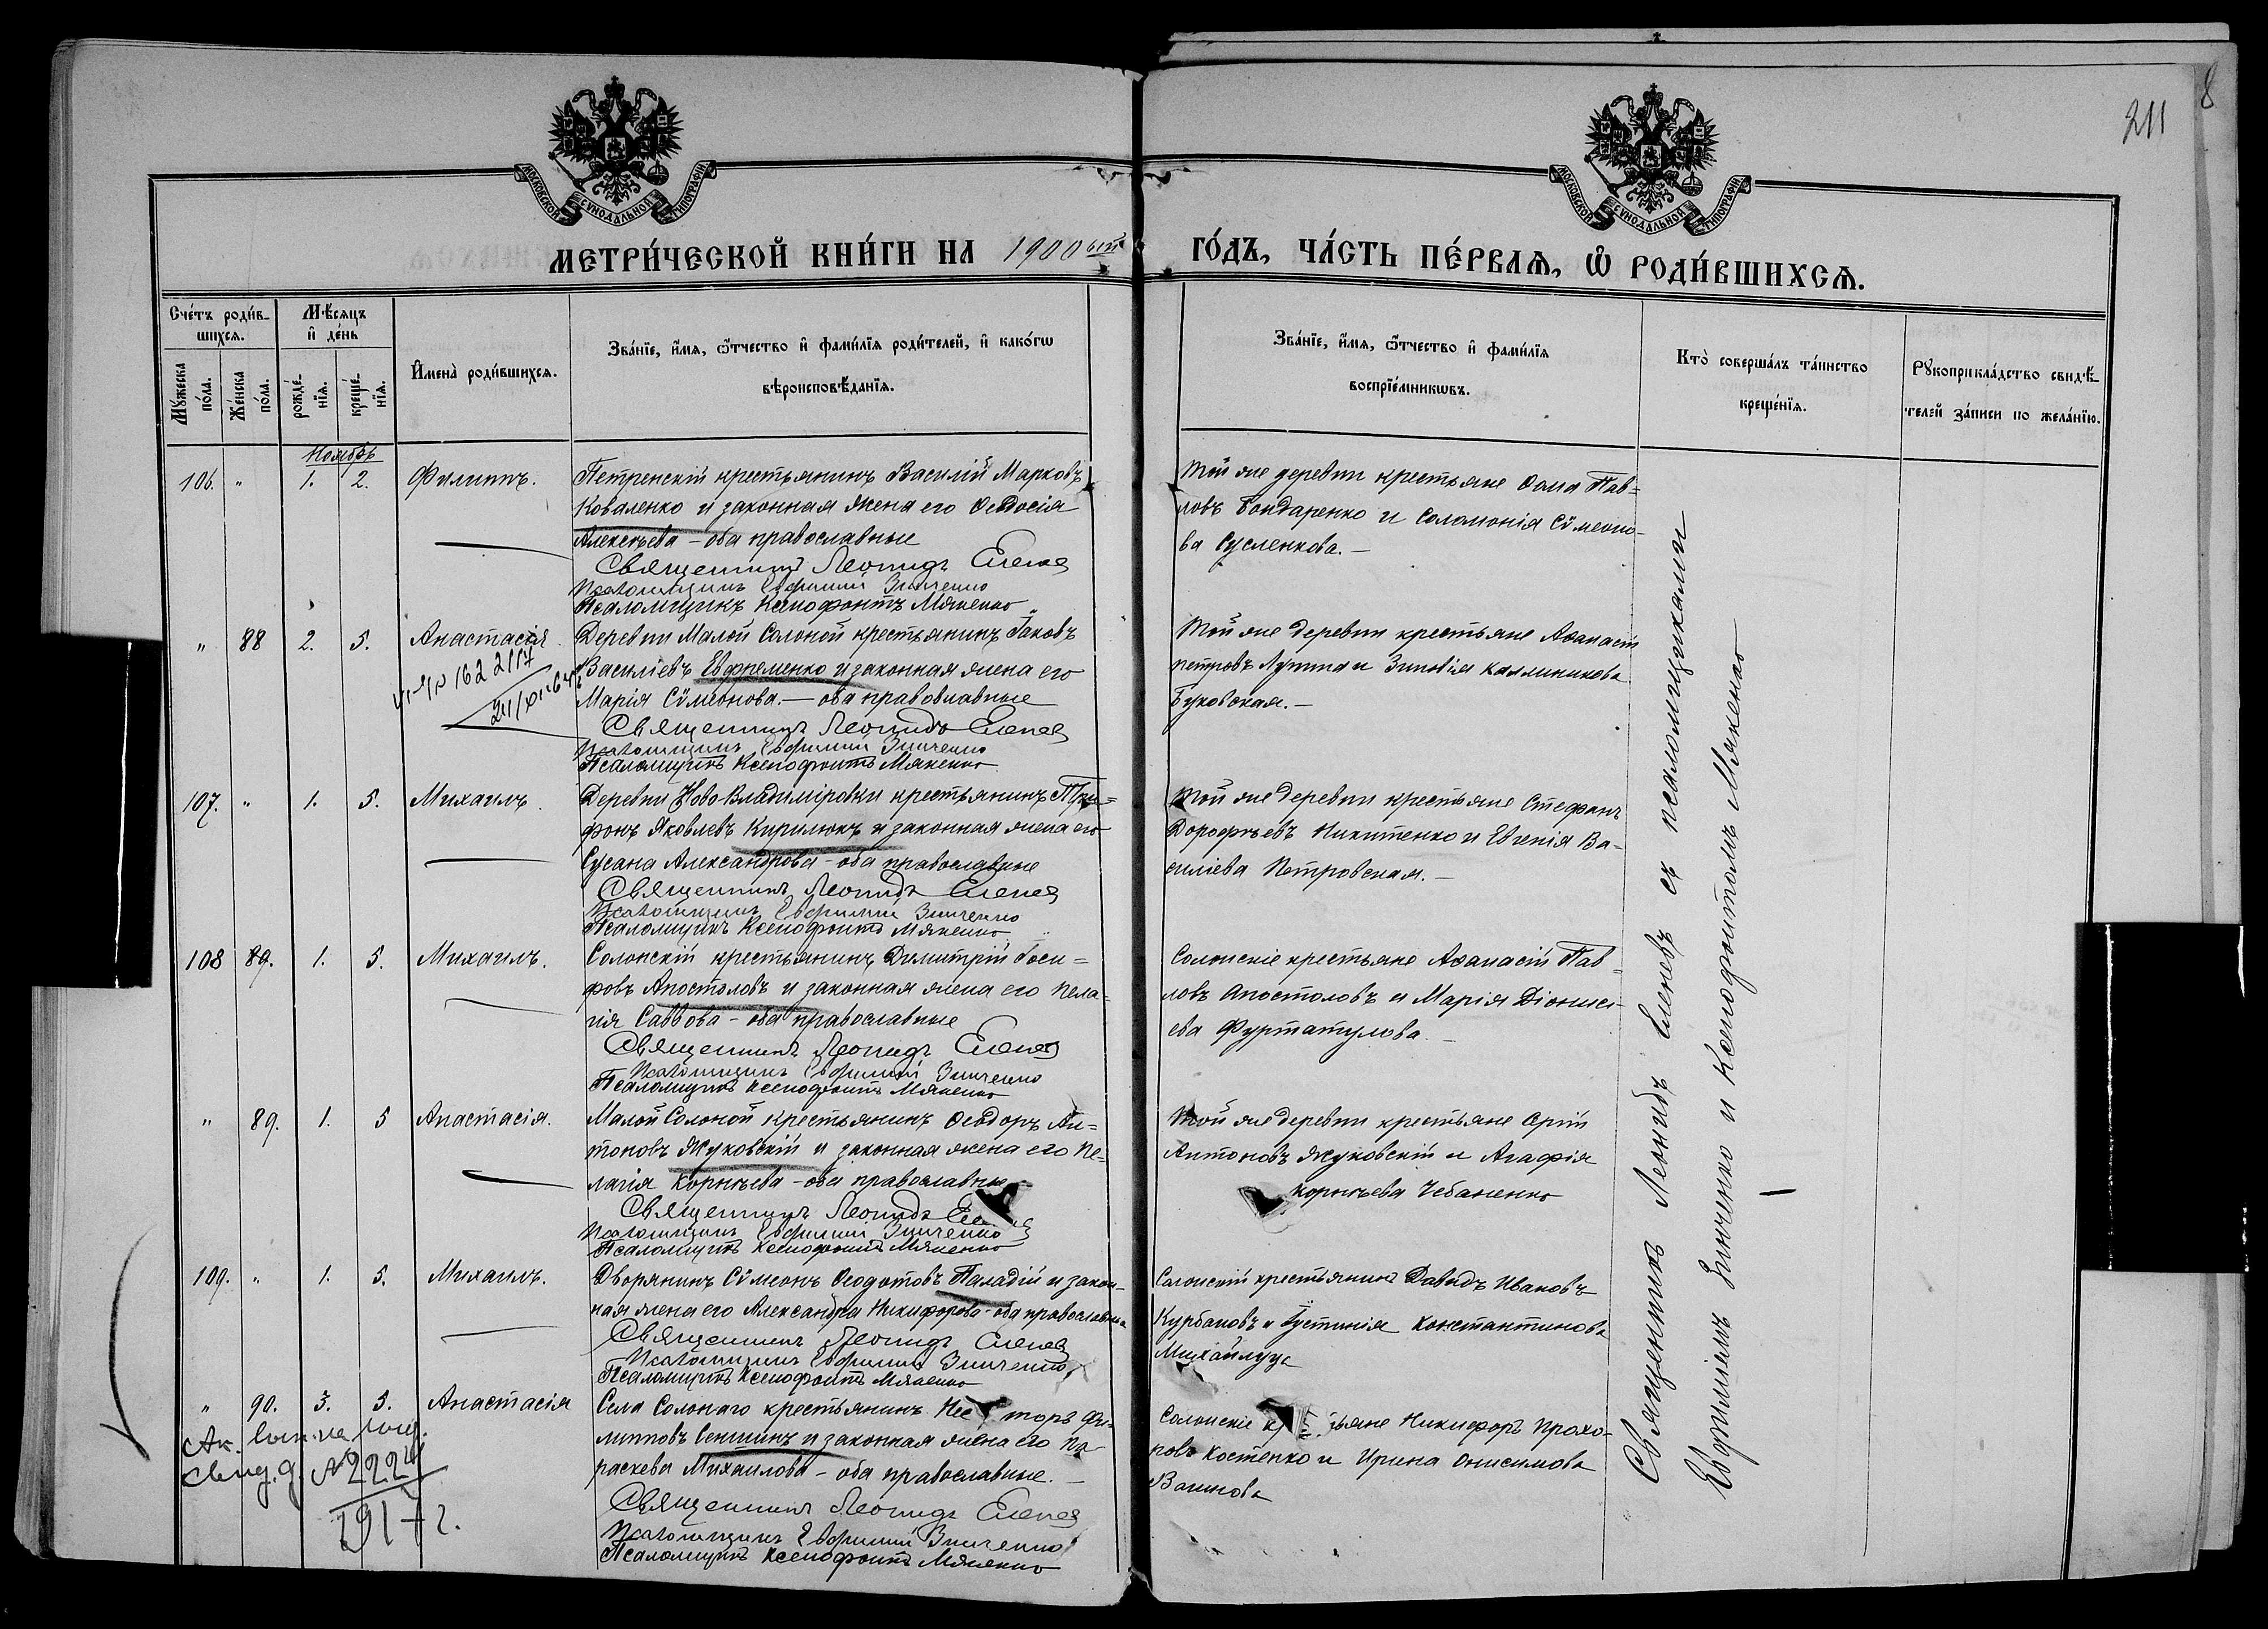 211
8
МОСКОВСКОЙ СУНОДАЛЬНОЙ ТИПОГРАФІИ
МОСКОВСКОЙ СУНОДАЛЬНОЙ ТИПОГРАФІИ
МЕТРИ́ЧЕСКОЙ КНИ́ГИ НА 1900 ый ГО́ДЪ, ЧА́СТЬ ПЕ́РВАѦ, Ѡ҆ РОДИ́ВШИХСѦ.
Сче́тъ роди́в-
шихсѧ.
Мꙋ́жеска по́ла.
Же́нска по́ла.
Мѣ́сяцъ
и҆ де́нь
рожде́-
нїѧ.
креще́-
нїѧ.
И҆мена̀ роди́вшихсѧ.
Зва́нїе, и҆́мѧ, ѻ҆́тчество и҆ фами́лїѧ роди́телей, и҆ како́гѡ
вѣроисповѣ́данїѧ.
Зва́нїе, и҆́мѧ, ѻ҆́тчество и҆ фами́лїѧ
воспрїе́мникѡвъ.
Кто̀ соверша́лъ та́инство
креще́нїѧ.
Рꙋкоприкла́дство свидѣ́-
телей за́писи по жела́нїю.
Ноябрь
106. " 1. 2. Филиппъ. Петренскій крестьянинъ Василій Марковъ
Коваленко и законная жена его Ѳеодосія
Алексѣева – оба православные
Священникъ Леонидъ Еленев
Псаломщикъ Евфимій Зинченко
Псаломщикъ Ксенофонтъ Мякенко
Той же деревни крестьяне Ѳома Пав=
ловъ Бондаренко и Соломонія Сѵмеоно-
ва Сусленкова. –
" 88 2. 5. Анастасія Деревни Малой Солоной крестьянинъ Іаковъ
Василіевъ Евфременко и законная жена его
Марія Сѵмеонова. – оба православные
Священникъ Леонидъ Еленев
Псаломщикъ Евфимій Зинченко
Псаломщикъ Ксенофонтъ Мякенко
Той же деревни крестьяне Аѳанасій
Петровъ Луппа и Зиновія Каллиникова
Буковская. –
107. " 1. 5. Михаилъ. Деревни Ново-Владиміровки крестьянинъ Три=
фонъ Яковлевъ Кирилюкъ и законная жена его
Сусана Александрова – оба православные
Священникъ Леонидъ Еленев
Псаломщикъ Евфимій Зинченко
Псаломщикъ Ксенофонтъ Мякенко
Той же деревни крестьяне Стефанъ
Дорофѣевъ Никитенко и Евгенія Ва-
силіева Петровская. –
108 89. 1. 5. Михаилъ. Солонскій крестьянинъ Димитрій Іоси=
фовъ Апостоловъ и законная жена его Пела-
гія Саввова – оба православные
Священникъ Леонидъ Еленев
Псаломщикъ Евфимій Зинченко
Псаломщикъ Ксенофонтъ Мякенко
Солонскіе крестьяне Аѳанасій Пав-
ловъ Апостоловъ и Марія Діонисі-
ева Фуртатулова. –
" 89. 1. 5 Анастасія. Малой Солоной крестьянинъ Ѳеодоръ Ан=
тоновъ Жуковскій и законная жена его Пе=
лагія Корнѣева – оба православные
Священникъ Леонидъ
Псаломщикъ Евфимій Зинченко
Псаломщикъ Ксенофонтъ Мякенко
Той же деревни крестьяне
Антоновъ Жуковскій и Агафія
Корнѣева Чебаненко
109. " 1. 5. Михаилъ. Дворянинъ Сѵмеонъ Ѳеодотовъ Паладій и закон-
ная жена его Александра Никифорова – оба православные
Священникъ Леонидъ Еленев
Псаломщикъ Евфимій Зинченко
Псаломщикъ Ксенофонтъ Мякенко
Солонскій крестьянинъ Давидъ Ивановъ
Курбановъ и Іустинія Константинова
Михайлуца
" 90. 3. 5. Анастасія Села Солонаго крестьянинъ Несторъ Фи-
липповъ Сеншинъ и законная жена его Па-
раскева Михаилова – оба православные. –
Священникъ Леонидъ Еленев
Псаломщикъ Евфимій Зинченко
Псаломщикъ Ксенофонтъ Мякенко
Солонскіе крестьяне Никифоръ Прохо-
ровъ Костенко и Ирина Онисимова
Вагинова
№ 2224
1917 г.
Священникъ Леонидъ Еленевъ съ псаломщиками
Евфиміемъ Зинченко и Ксенофонтомъ Мякенко